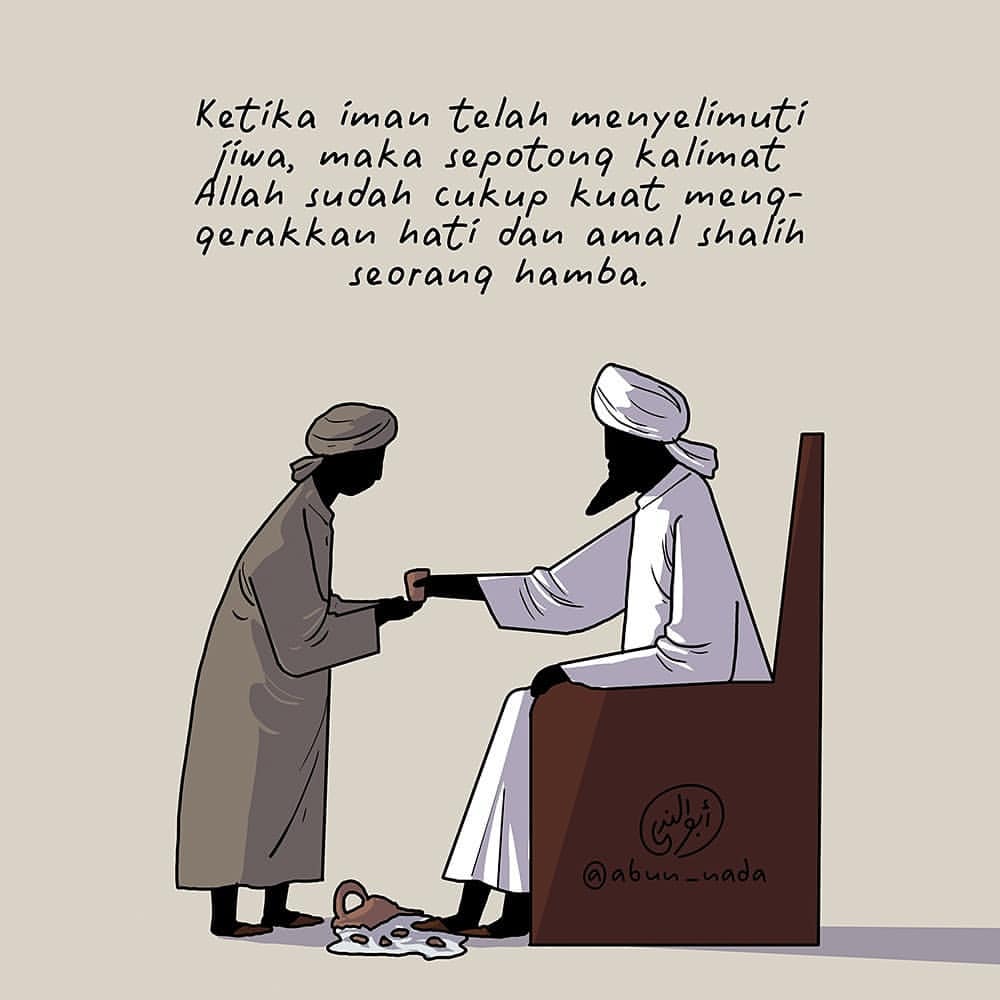 Ketika iman telah menyelimuti
jiwa, maka sepotong kalimat
Allah sudah cukup kuat meng-
gerakkan hati dan amal shalih
seorang hamba.
@abun_nada